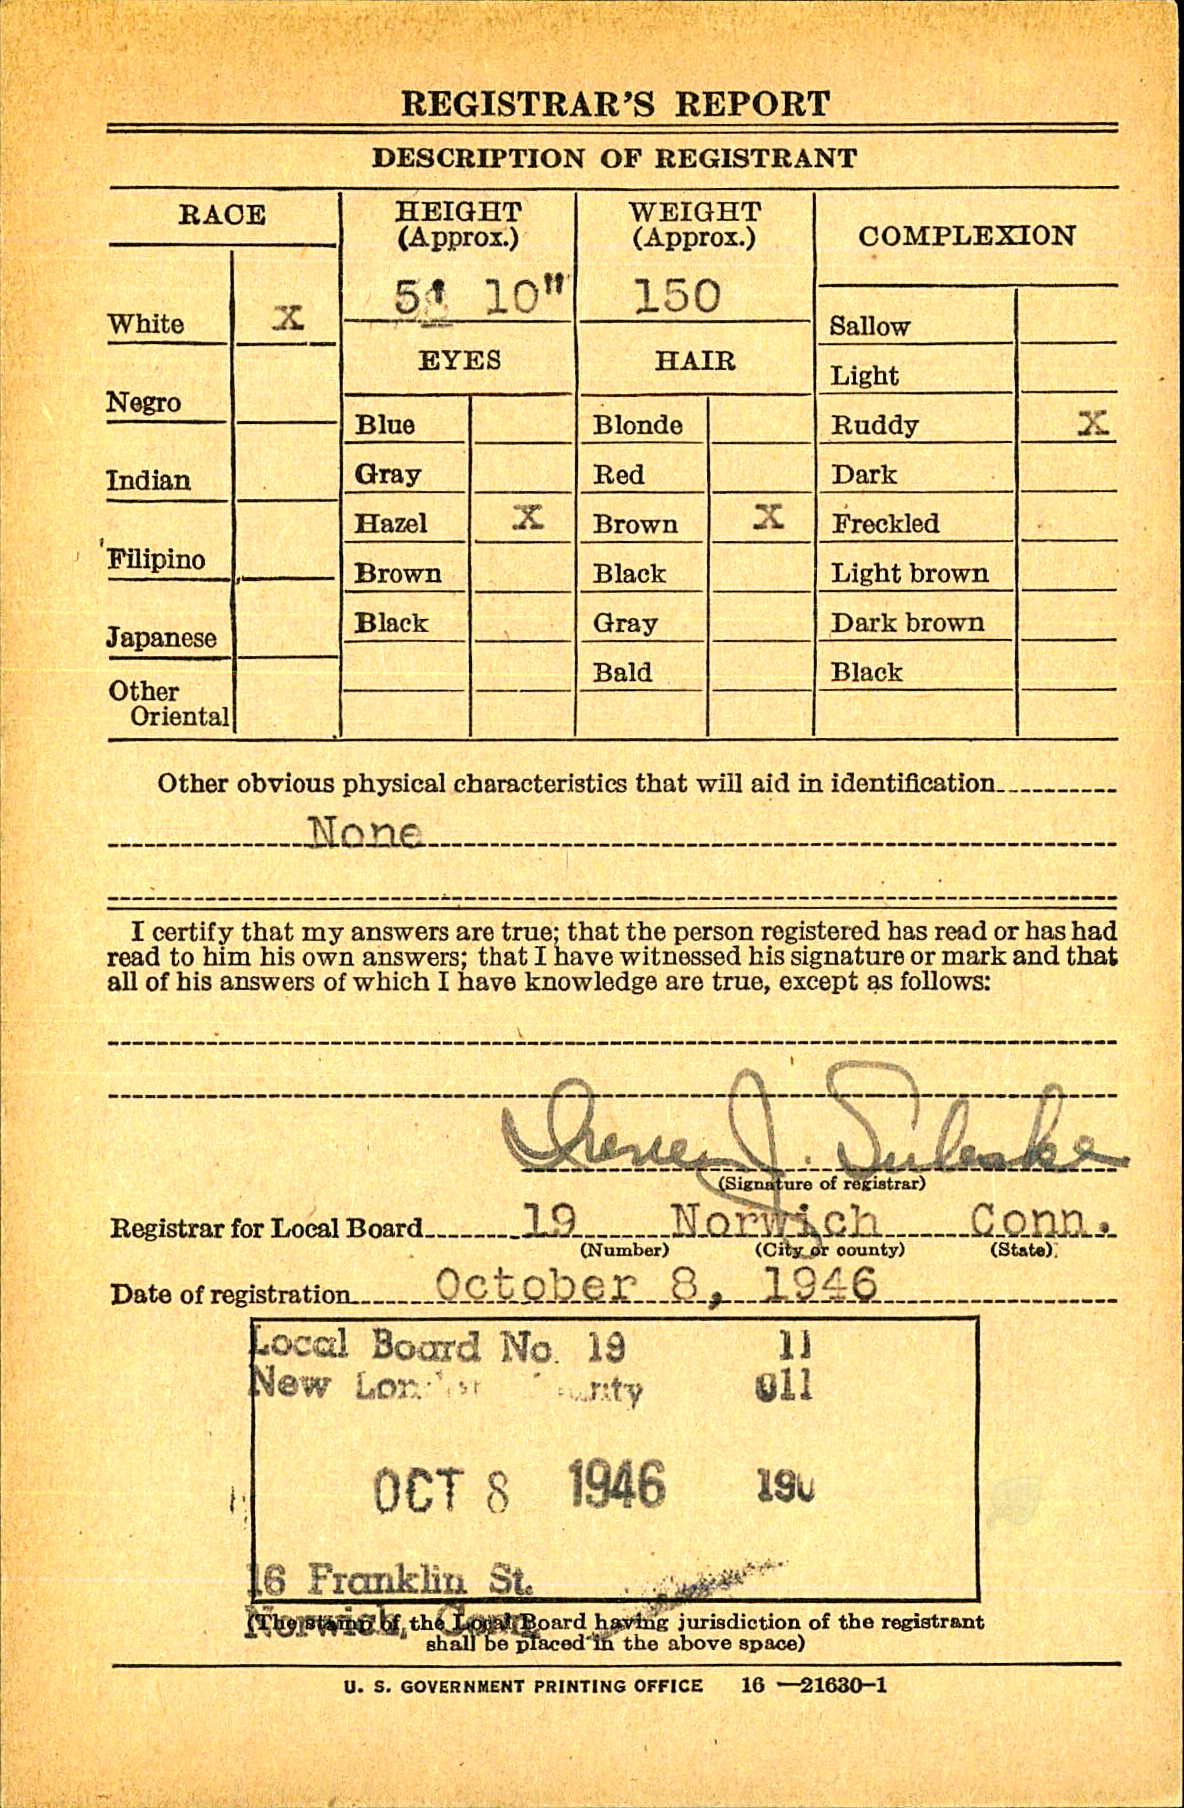 REGISTRAR'S REPORT
DESCRIPTION OF REGISTRANT
RACE
HEIGHT
(Approx.)
WEIGHT
(Approx.)
COMPLEXION
5' 10"
150
White X
Sallow
EYES
HAIR
Light
Negro
Blue
Blonde
Ruddy X
Indian
Gray
Red
Dark
Hazel X
Brown X
Freckled
Filipino
Brown
Black
Light brown
Japanese
Black
Gray
Dark brown
Bald
Black
Other
Oriental
Other obvious physical characteristics that will aid in identification
None
I certify that my answers are true; that the person registered has read or has had
read to him his own answers; that I have witnessed his signature or mark and that
all of his answers of which I have knowledge are true, except as follows:
Irene J. Suleske
(Signature of registrar)
Registrar for Local Board 19 Norwich Conn.
(Number) (City or county) (State)
Date of registration October 8, 1946
Local Board No. 19 11
New London County 011
OCT 8 1946 190
16 Franklin St.
Norwich, Conn.
(The stamp of the Local Board having jurisdiction of the registrant
shall be placed in the above space)
U. S. GOVERNMENT PRINTING OFFICE 16—21630-1